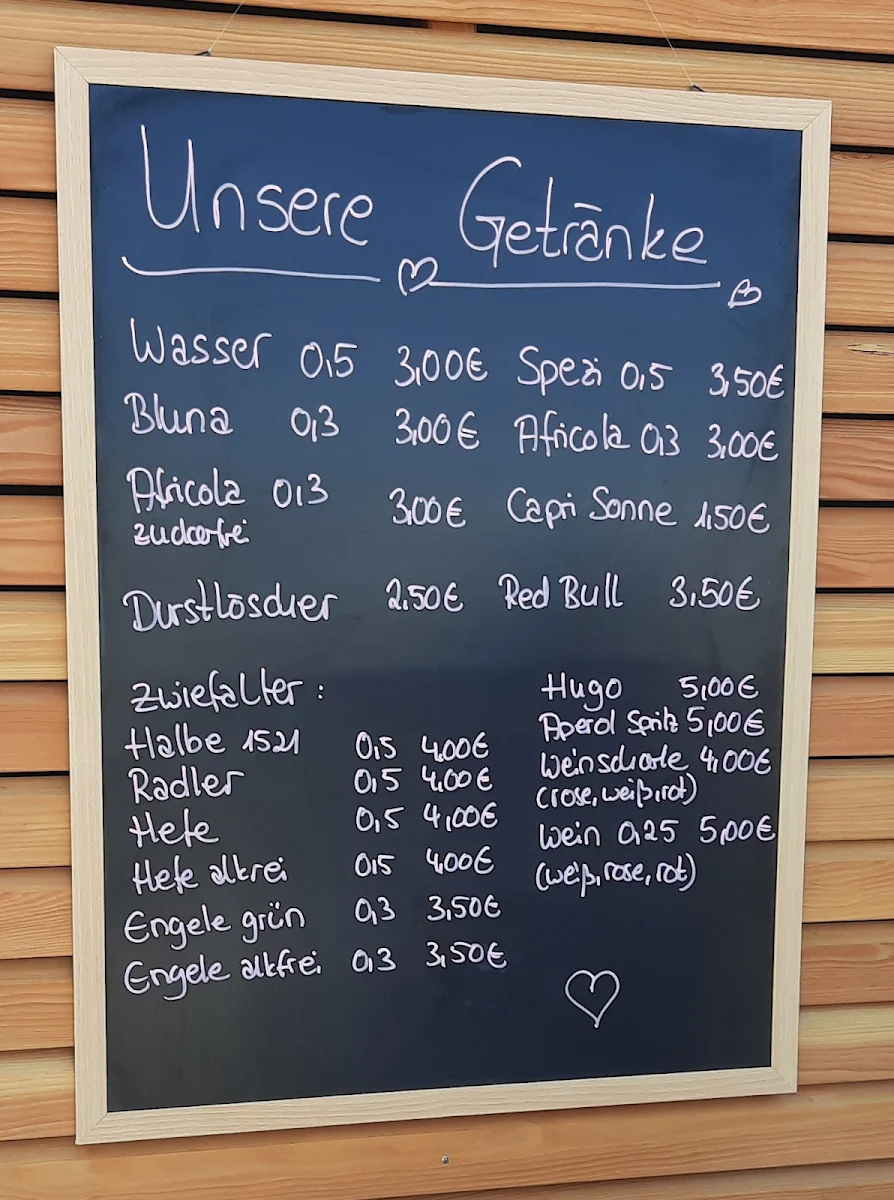 Unsere Getränke
Wasser 0,5 3,00€ Spezi 0,5 3,50€
Bluna 0,3 3,00€ Africola 0,3 3,00€
Africola 0,3 3,00€ Capri Sonne 1,50€
zuckerfrei
Durstlöscher 2,50€ Red Bull 3,50€
Zwiefalter:
Halbe 1521 0,5 4,00€
Radler 0,5 4,00€
Hefe 0,5 4,00€
Hefe alkfrei 0,5 4,00€
Engele grün 0,3 3,50€
Engele alkfrei 0,3 3,50€
Hugo 5,00€
Aperol Spritz 5,00€
Weinschorle 4,00€
(rose, weiß, rot)
Wein 0,25 5,00€
(weiß, rose, rot)